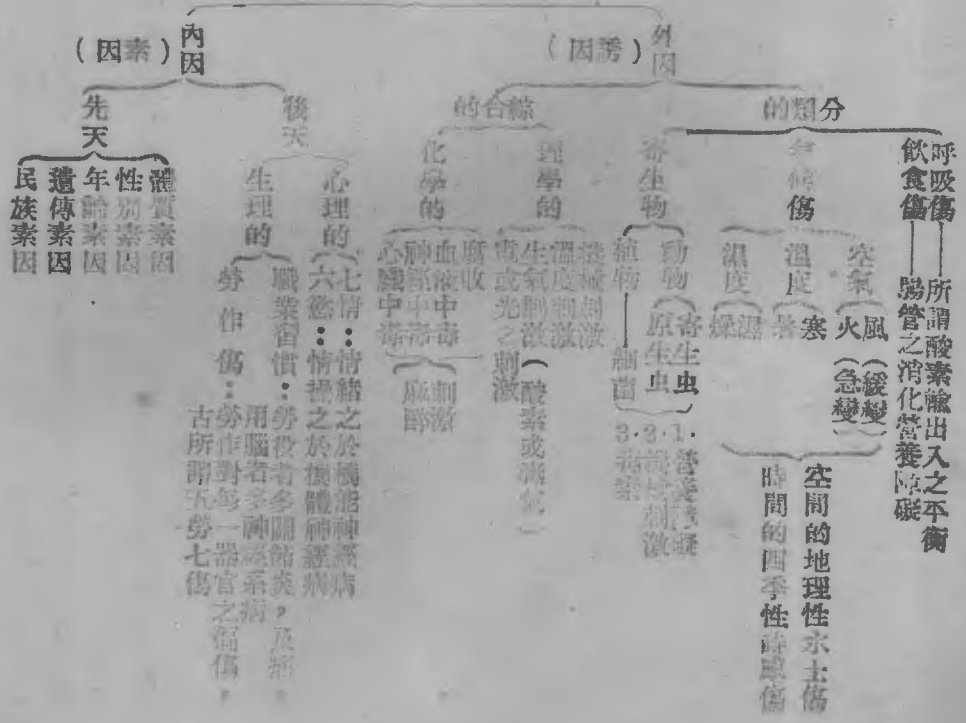 外因
（誘因）
分類的
呼吸傷——所謂酸素輸出入之平衡
飲食傷——腸管之消化營養障礙
傷
空氣
風（緩變）
火（急變）
溫度
寒
暑
濕度
濕
燥
空間的地理性水土傷
時間的四季性時感傷
寄生物
動物
寄生虫
原生虫
植物——細菌
1.營養障礙
2.機械刺激
3.毒素
綜合的
理學的
機械刺激
溫度刺激
生氣刺激（酸素或
電或光之刺激
化學的
腐收
血液中毒
神經中毒
心臟中毒
刺激
麻醉
內因
（素因）
後天
心理的
七情：情緒之於機能神經病
六慾：情操之於機體神經病
生理的
職業習慣：勞役者多關節炎，及
用腦者多神經系病
勞作傷：勞作對每一器官之傷，
古所謂五勞七傷
先天
體質素因
性別素因
年齡素因
遺傳素因
民族素因